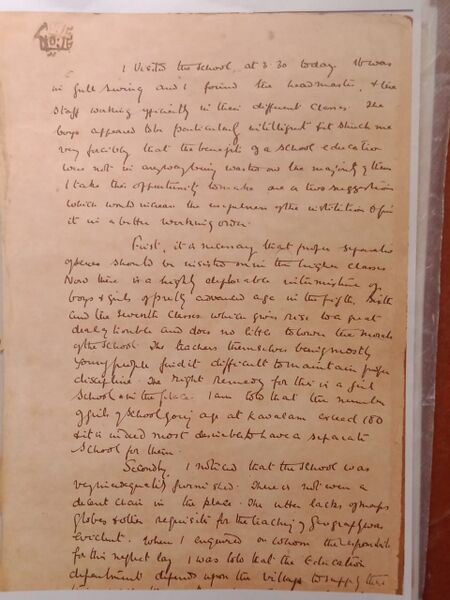 I visited the School at 3.30 today. It was
in full swing and I found the headmaster & the
staff working efficiently in their different classes. The
boys appeared to be particularly intelligent & it struck me
very forcibly that the benefits of a School education
were not in anyway being wasted on the majority of them
I take this opportunity to make one or two suggestions
which would increase the usefulness of the institution & put
it in a better working order.
First, it is necessary that proper separation
of sexes should be insisted on in the higher classes
Now there is a highly deplorable intermixture of
boys & girls of pretty advanced age in the fifth, Sixth
and the Seventh Classes which gives rise to a great
deal of trouble and does no little to lower the morals
of the School. The teachers themselves being mostly
young people find it difficult to maintain proper
discipline. The Right Remedy for this is a girls
School in the place. I am told that the number
of girls of School going age at Kavalam exceed 180
& it is indeed most desirable to have a separate
School for them.
Secondly, I noticed that the School was
very inadequately furnished. There is not even a
decent chair in the place. The utter lack of maps
globes & other requisites for the teaching of Geography was
evident. When I enquired on whom the responsibility
for this neglect lay I was told that the Education
department depends upon the village to supply these